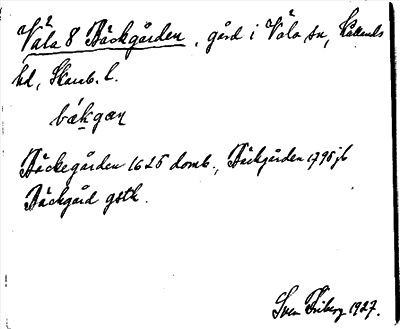 Våla 8 Bäckgården, gård i Våla sn, Kåkinds
hd, Skarab. l.
bækgæn
Bäckegården 1625 domb., Bäckgården 1795 jb
Bäckgård gstk.
Sven Friberg 1927.